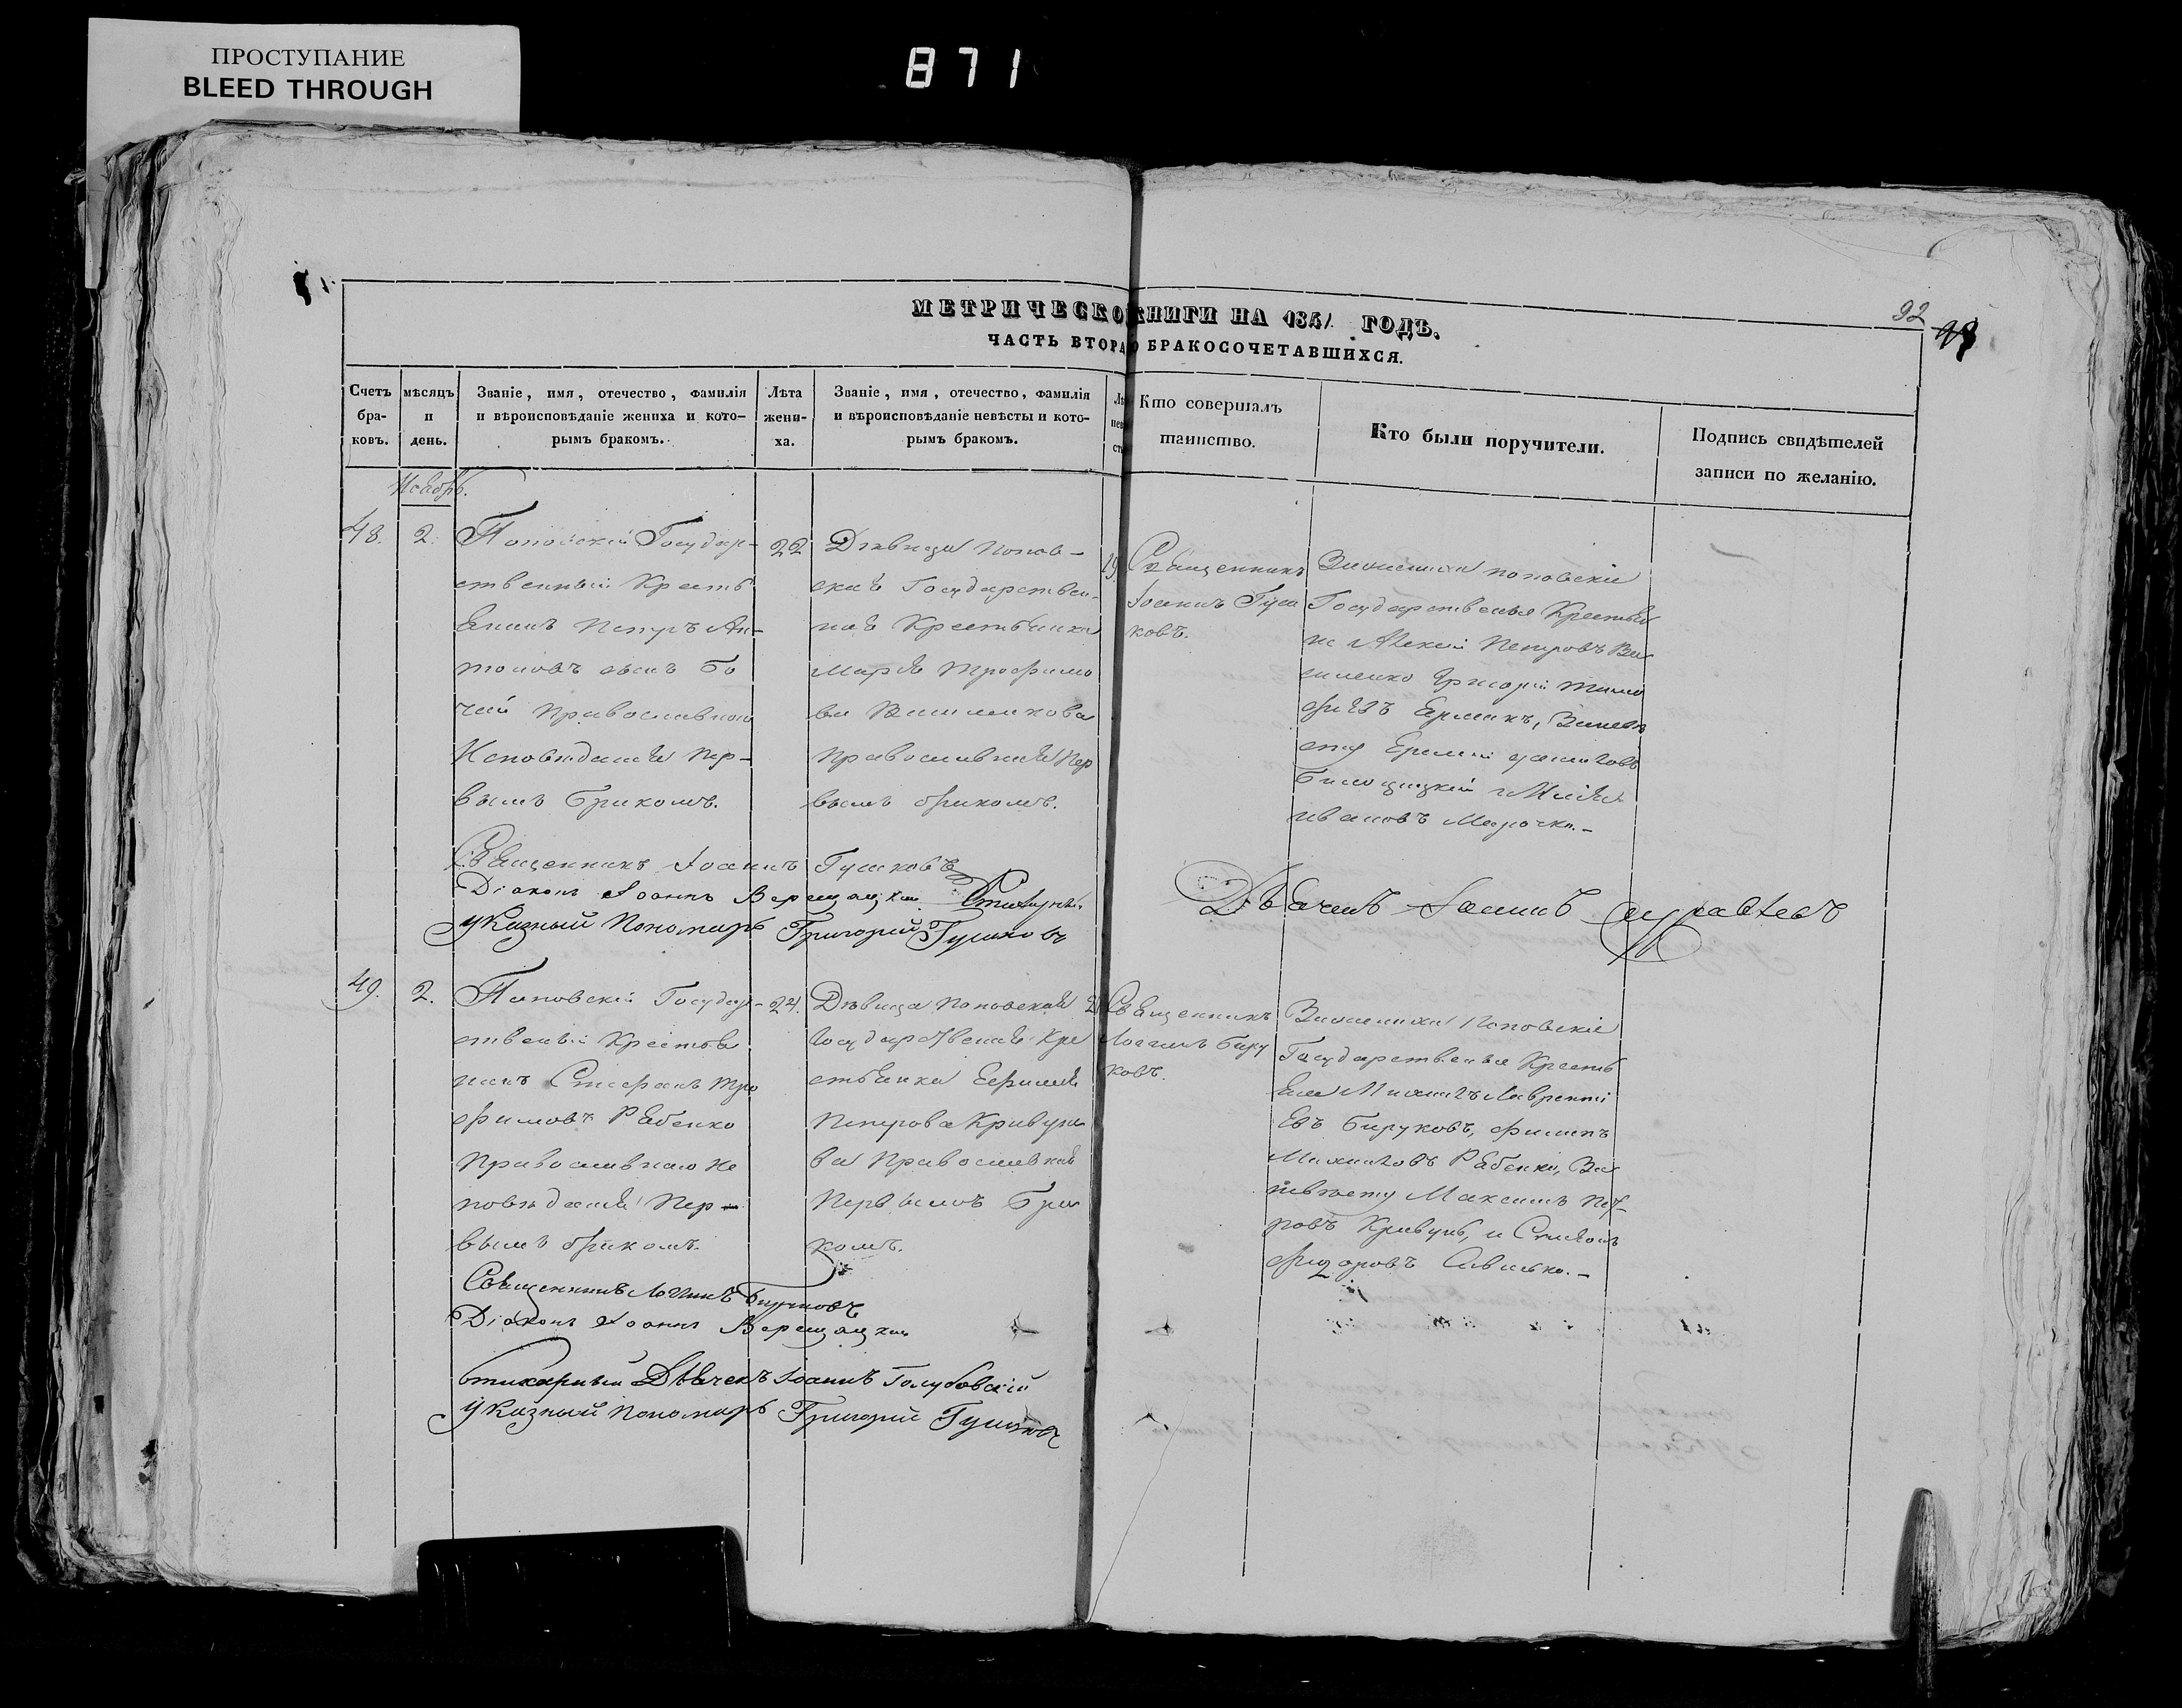 ПРОСТУПАНИЕ
BLEED THROUGH
871
92
МЕТРИЧЕСКО КНИГИ НА 1851 ГОДЪ.
ЧАСТЬ ВТОРА О БРАКОСОЧЕТАВШИХСЯ.
Счетъ бра-ковъ.
мѣсяцъ и день.
Званіе, имя, отечество, фамилія
и вѣроисповѣданіе жениха и кото-
рымъ бракомъ.
Лѣта жени-ха.
Званіе, имя, отечество, фамилія
и вѣроисповѣданіе невѣсты и кото-
рымъ бракомъ.
Кто совершалъ
таинство.
Кто были поручители.
Подпись свидѣтелей
записи по желанію.
Ноябрь.
48.
2.
Поповскій Государ-
ственный Кресть
янинъ Петръ Ан-
тоновъ сынъ Бо
чай Православнаго
Исповѣданія Пер-
вымъ бракомъ.
22
Дѣвица Попов-
ская Государствен-
ная Крестьянка
Марія Трофимо
ва
Православная Пер
вымъ бракомъ.
19.
Священникъ
Іоаннъ Гуш
ковъ.
поповскіе
Государственые Крестья
не Алексѣй Петровъ Ва
силенко Григорій
Ермакъ,
Ивановъ Марочка.-
Священникъ Іоаннъ Гушковъ
Діаконъ Іоаннъ Верещацкій
указный Пономарь Григорій Гушковъ
Дьячекъ Іоаннъ
49.
2.
Поповскій Государ-
ственый Крестья
нинъ Стефанъ Тро
фимовъ Рябенко
Православнаго Ис
повѣданія Пер-
вымъ бракомъ.
24.
Дѣвица Поповская
Государственая Кре
стьянка Ефимія
Петрова Кривуно
ва Православная
Первымъ бра
комъ.
Священникъ
Логинъ Биру
ковъ.
Поповскіе
Государственые Кресть
яне Михаилъ Лавренті
евъ Бируковъ, Филипъ
Михайловъ Рябенко,
Максимъ Пет
ровъ Кривунъ, и
Федоровъ
Священникъ Логинъ Бируковъ
Діаконъ Іоаннъ Верещацкій
Стихарный Дьячекъ Іоаннъ Голубовскій
указный Пономарь Григорій Гушковъ